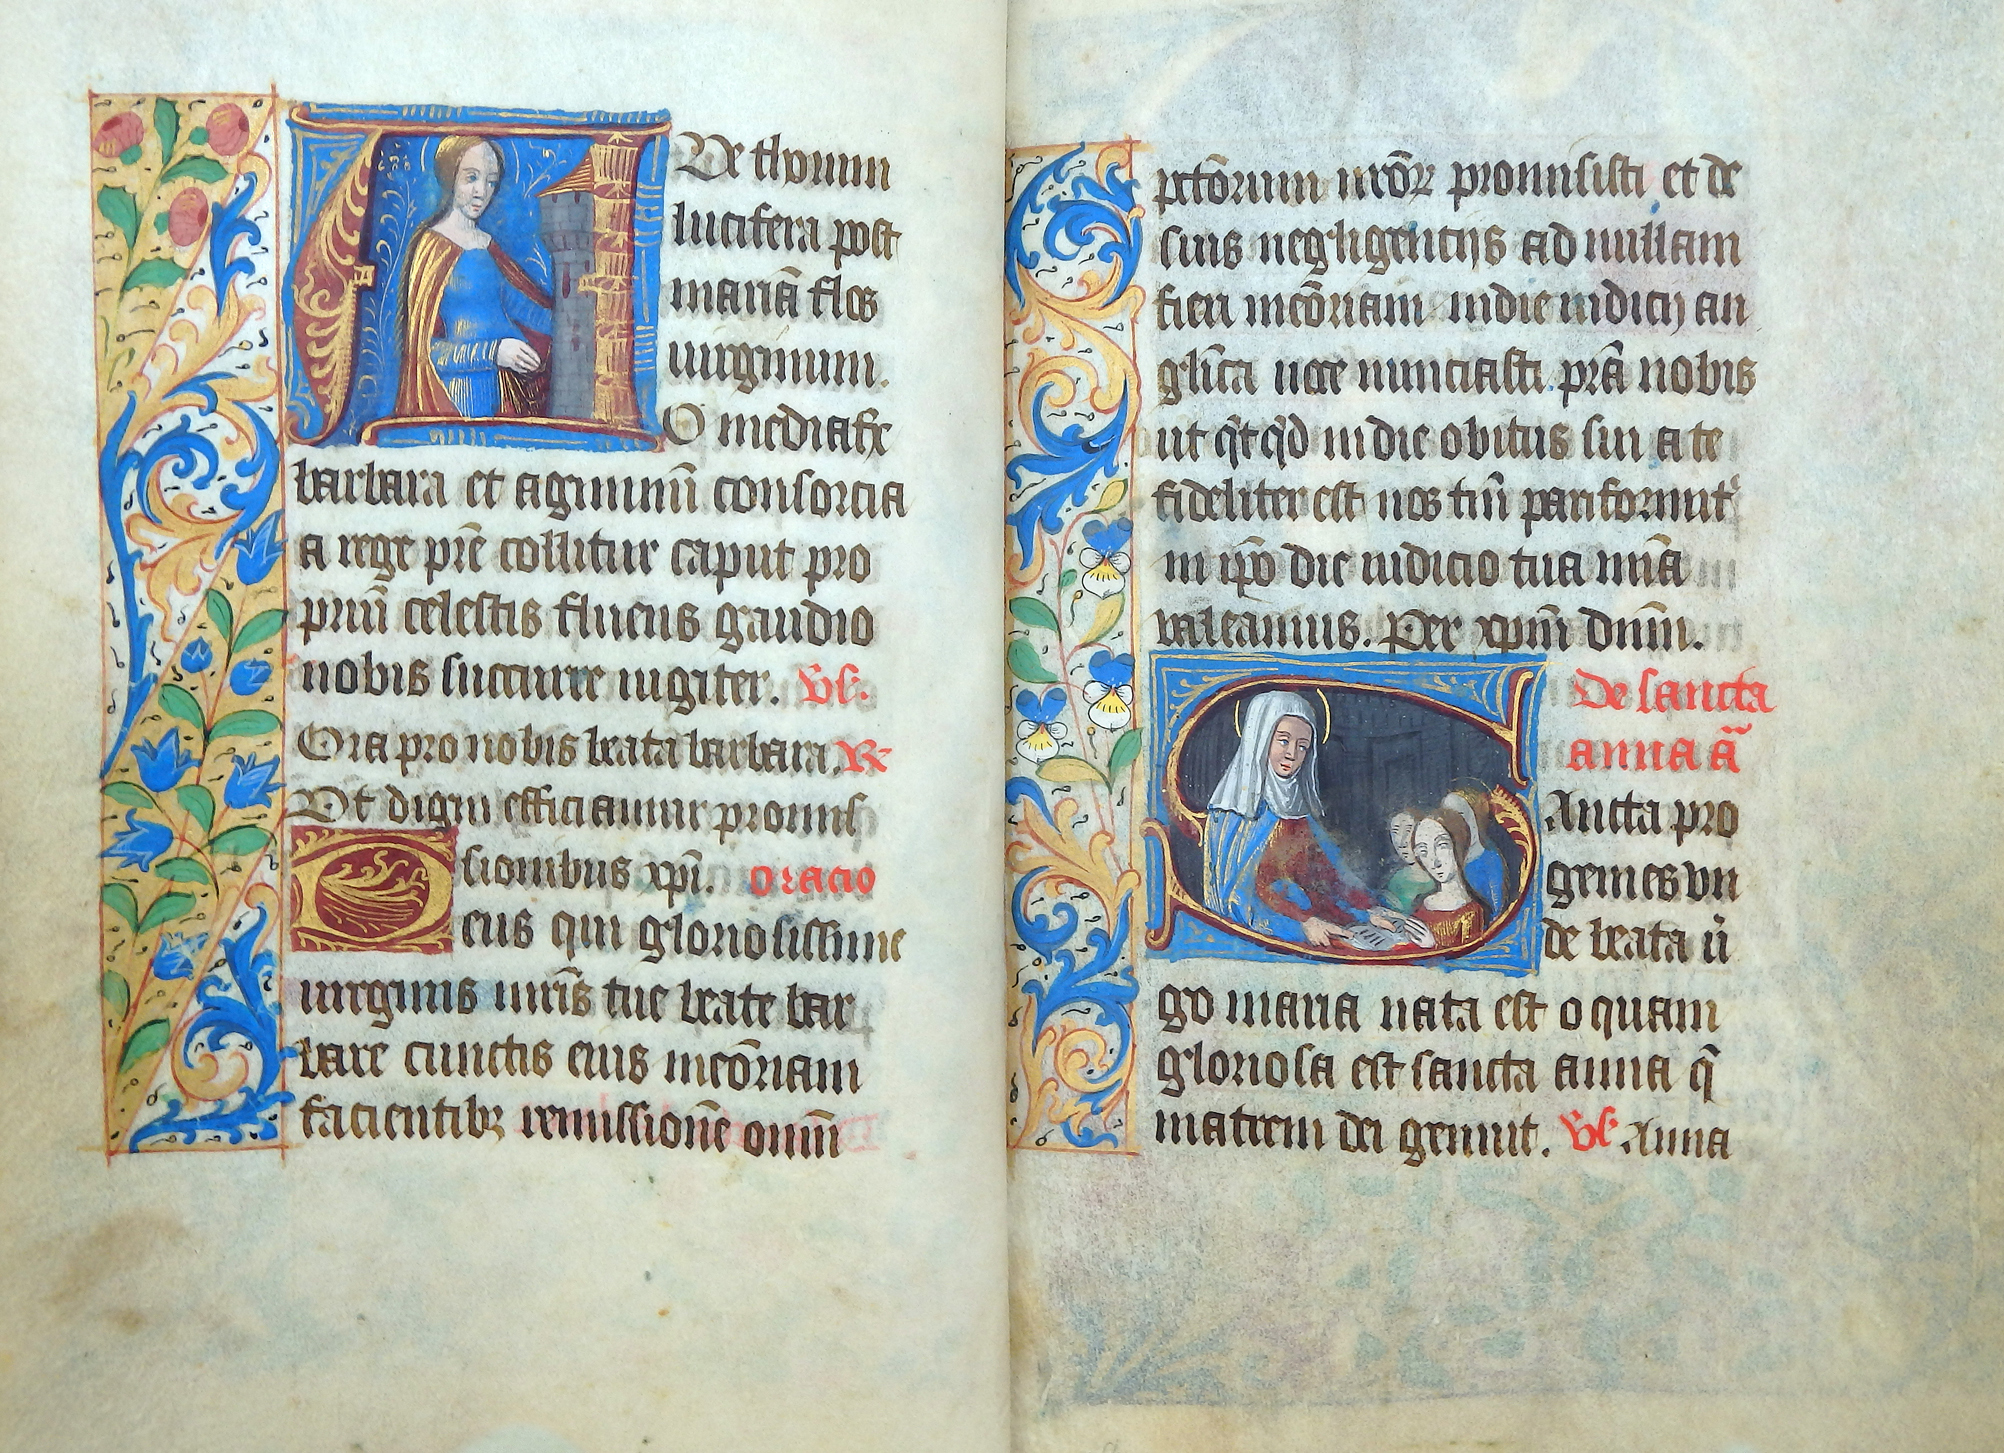 Ve thorum
lucifera post
mariā flos
uirginum.
O mediatrx
barbara et agminū consorcia
a rege prē collitur caput pro
priū celestis fluens gaudio
nobis succurre iugiter. Vs.
Ora pro nobis beata barbara. R
Vt digni efficiamur promis
sionibus xpi. oracio
Deus qui gloriosissime
uirginis mr̄is tue beate bar
bare cunctis eius meōriam
facientibꝫ remissionē omm̄
pctōrum meōꝝ promisisti et de
suis negligentijs ad nullam
fieri meōriam in die iudicij an
glīca uoce nunciasti prā nobis
ut qd in die obitus sui a te
fideliter est nos tm̄ pariformit᷑
in ipō die iudicio tua mīa
ualeamus. Per xpm̄ dnm̄.
De sancta
anna ā
SAncta pro
genies vn
de beata ui
go maria nata est o quam
gloriosa est sancta anna q̄
matrem dei genuit. Vs. Anna